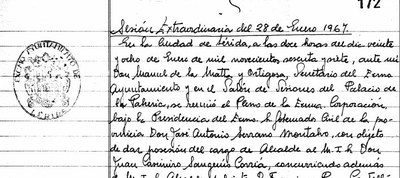 172
Sesión Extraordinaria del 28 de Enero 1967.
En la Ciudad de Lérida, a las doce horas del día veinte
y ocho de Enero de mil novecientos sesenta y siete, ante mi
Don Manuel de la Matta y Ortigosa, Secretario del Excmo
Ayuntamiento y en el Salón de Sesiones del Palacio de
la Pahería, se reunió el Pleno de la Excma. Corporación
bajo la Presidencia del Excmo. Sr. Gobernador Civil de la pro-
vincia Don José Antonio Serrano Montalvo, con objeto
de dar posesión del cargo de Alcalde al M. I. Sr. Don
Juan Casimiro Sangenís Corriá, concurriendo además
EXCMO. AYUNTAMIENTO DE
LERIDA